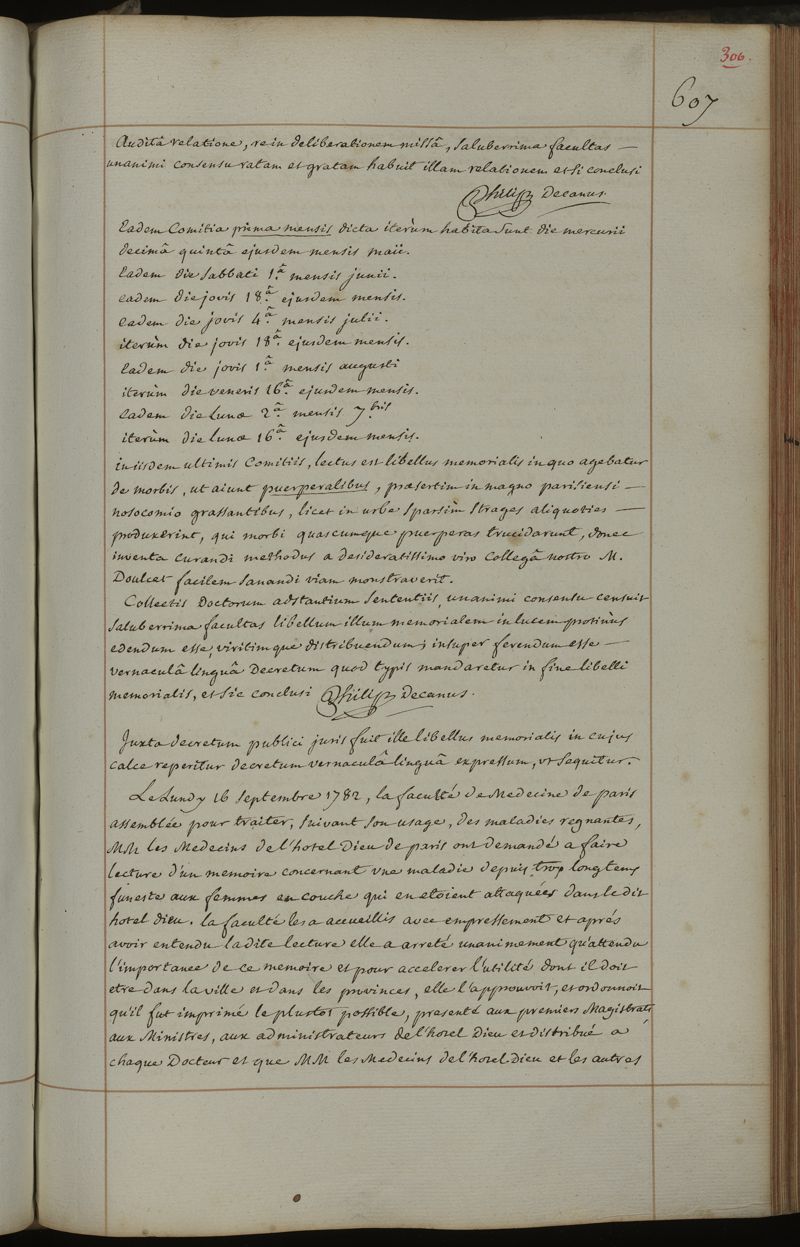 306.
607
Audità relatione, re in deliberationem missâ, saluberrima facultas —
unanimi consensu ratam et gratam habuit illam relationem et si conclusi
Philip Decanus.
Eadem Comitia prima mensis dicta iterùm habita sunt die mercurii
decimâ quintâ ejusdem mensis maii.
Eadem die sabbati 1.â mensis junii.
eadem die jovis 18.â ejusdem mensis.
eadem die jovis 4.â mensis julii.
iterùm die jovis 18.â ejusdem mensis.
Eadem die jovis 1.â mensis augusti
iterùm die veneris 16.â ejusdem mensis.
Eadem die lunæ 2.â mensis 7bris
iterùm die lunæ 16.â ejusdem mensis.
in iisdem ultimis Comitiis, lectus est libellus memorialis in quo agebatur
de morbis, ut aiunt puerperalibus, præsertim in magno parisiensi —
nosocomio grassantibus, licet in urbe sparsìm strages aliquoties —
produxerint, qui morbi quascumque puerperas trucidarunt, donec
inventa curandi methodus a desideratissimo viro collegâ nostro M.
Doulcet facilem sanandi viam monstraverit.
Collectis Doctorum adstantium sententiis, unanimi consensu censuit
saluberrima facultas libellum illum memorialem in lucem protinùs
edendum esse, viritimque distribuendum; insuper ferendum esse —
vernaculâ linguâ Decretum quod typis mandaretur in fine libelli
memorialis, et sic conclusi Philip Decanus.
Juxta decretum publici juris fuit ille libellus memorialis in cujus
calce reperitur decretum vernaculâ linguâ expressum, ut sequitur.
Le Lundy 16 septembre 1782, la faculté de Medecine de paris
assemblée pour traiter, suivant son usage, des maladies regnantes,
MM les Medecins de l'hotel Dieu de paris ont demandé a faire
lecture d'un memoire concernant une maladie depuis trop longtems
funeste aux femmes en couche qui en etoient attaquées dans le dit
hotel dieu. la faculté les a accueillis avec empressement et aprés
avoir entendu la dite lecture elle a arreté unanimement qu'attendu
l'importance de ce memoire et pour accelerer l'utilité dont il doit
etre dans la ville et dans les provinces, elle l'approuvoit, et ordonnoit
qu'il fut imprimé le plustot possible, presenté aux premiers Magistrats
aux Ministres, aux administrateurs de l'hotel Dieu et distribué a
chaque Docteur et que MM les Medecins de l'hotel-Dieu et les autres